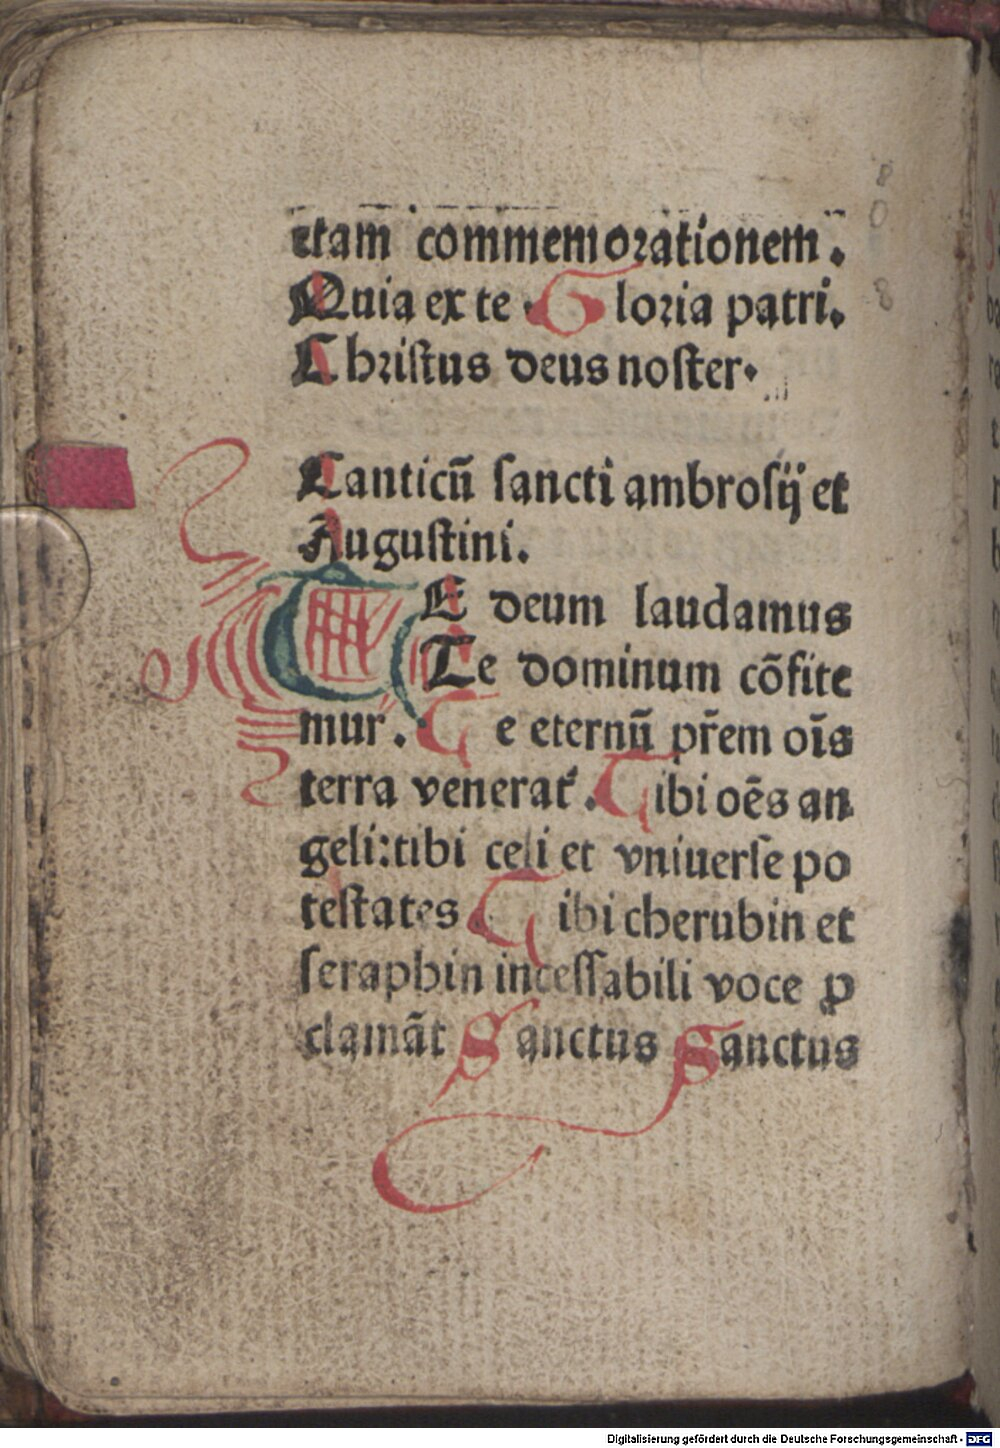 ctam commemorationem.
Quia ex te. Gloria patri.
Christus deus noster.
Canticū sancti ambrosij et
Augustini.
TE deum laudamus
Te dominum cōfite
mur. Te eternū pr̄em oīs
terra venerat᷑. Tibi oēs an
geli: tibi celi et vniuerse po
testates Tibi cherubin et
seraphin incessabili voce ꝓ
clamāt Sanctus Sanctus
8
0
8
Digitalisierung gefördert durch die Deutsche Forschungsgemeinschaft - DFG